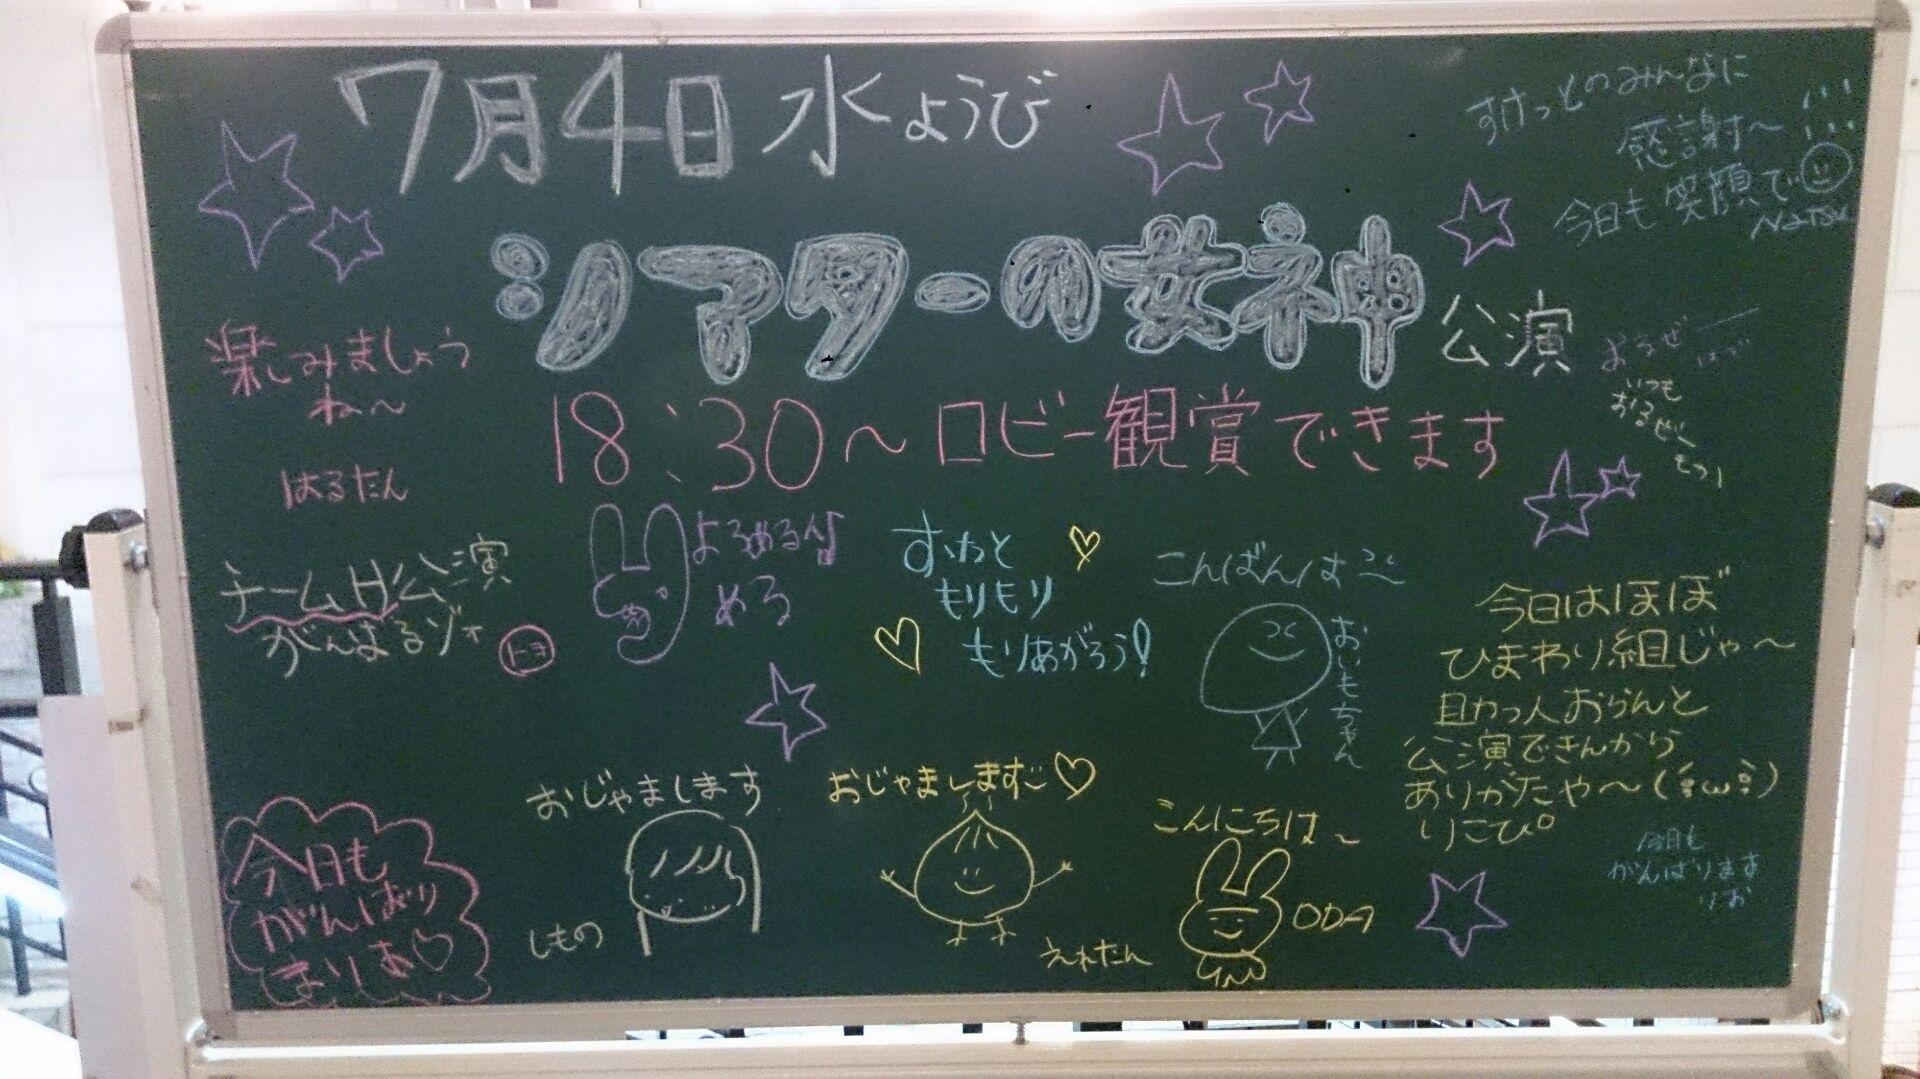 7月4日 水ようび
シアターの女神 公演
18:30〜ロビー観賞できます
すけっとのみんなに
感謝〜
今日も笑顔で
NATSU
楽しみましょう
ね〜
はるたん
いつも
おるぜ〜
チームH公演
がんばるゾォ
トヨ
よろめる
める
すけっと
もりもり
もりあがろう!
こんばんは
おいもちゃん
今日はほぼ
ひまわり組じゃ〜
助っ人おらんと
公演できんから
ありがたや〜(´ω`)
りこぴ
今日も
がんばります
りお
おじゃまします
しもの
おじゃましますご♡
えれたん
こんにちは〜
ODA
今日も
がんばり
まりあ♡